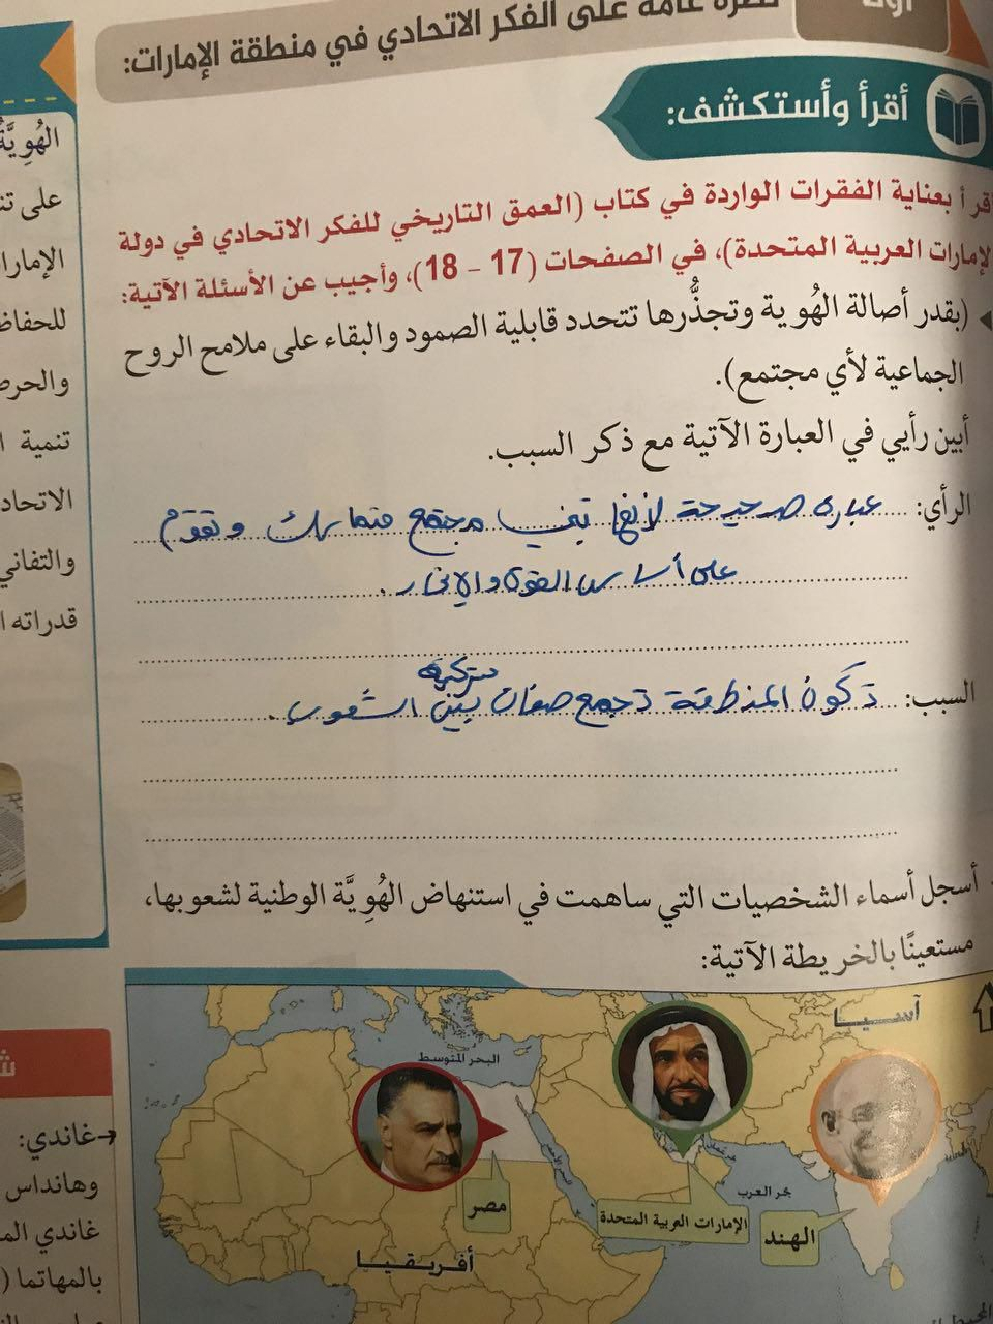 أولًا
نظرة عامة على الفكر الاتحادي في منطقة الإمارات:
أقرأ وأستكشف:
اقرأ بعناية الفقرات الواردة في كتاب (العمق التاريخي للفكر الاتحادي في دولة
الإمارات العربية المتحدة)، في الصفحات (17 - 18)، وأجيب عن الأسئلة الآتية:
(بقدر أصالة الهُوية وتجذُّرها تتحدد قابلية الصمود والبقاء على ملامح الروح
الجماعية لأي مجتمع).
أبين رأيي في العبارة الآتية مع ذكر السبب.
الرأي: عبارة صحيحة لأنها تبني مجتمع متماسك وتقوم
على أساس القوة والإتحاد.
مشتركة
السبب: تكون المنطقة تجمع صفات بين الشعوب.
أسجل أسماء الشخصيات التي ساهمت في استنهاض الهُوِيَّة الوطنية لشعوبها،
مستعينًا بالخريطة الآتية:
آسيا
البحر المتوسط
البحر الأحمر
بحر عمان
بحر العرب
مصر
الإمارات العربية المتحدة
الهند
أفريقيا
الهُوِيَّة
على
الإمارا
للحفاظ
والحرص
تنمية
الاتحاد
والتفاني
قدراته
غاندي:
وهانداس
غاندي
بالمهاتما (